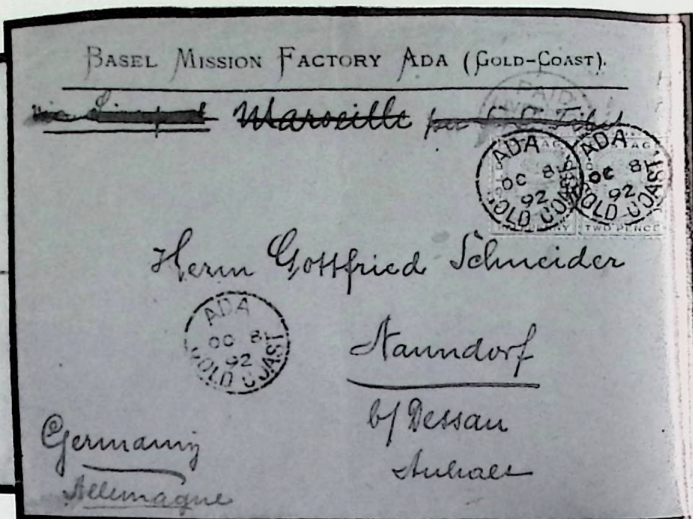 BASEL MISSION FACTORY ADA (GOLD-COAST).
via Liverpool Marseille per S.S.
PAID
ADA
OC 8
92
GOLD COAST
ADA
OC 8
92
GOLD COAST
TWO PENCE
Herrn Gottfried Schneider
ADA
OC 8
92
GOLD COAST
Naundorf
b/ Dessau
Anhalt
Germany
Allemagne